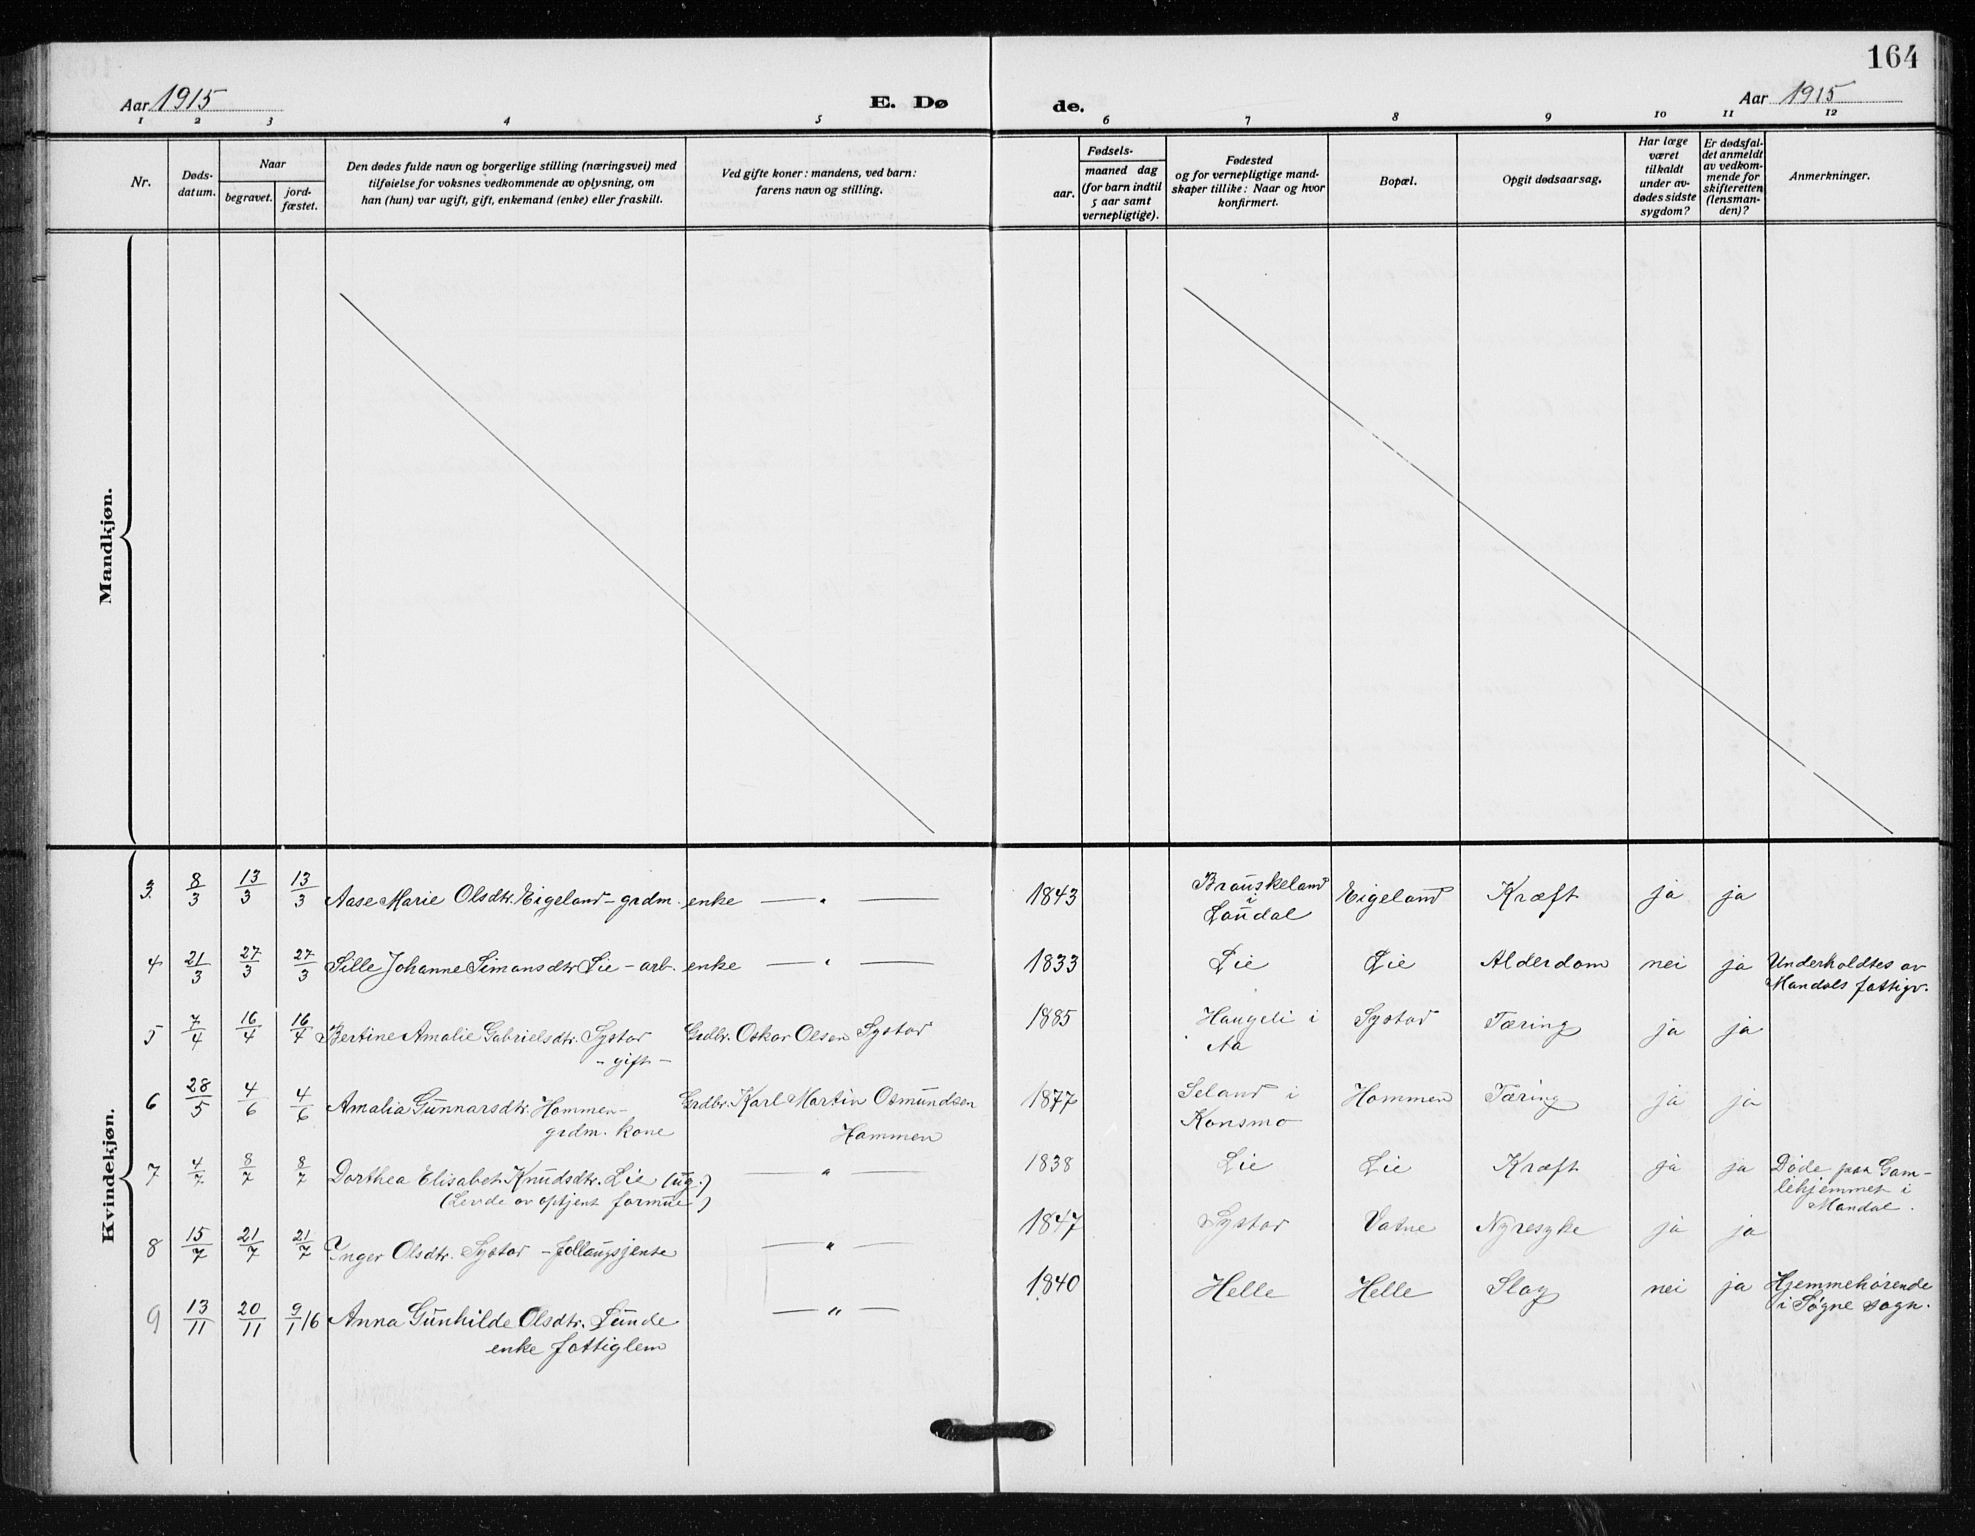 164
Aar 1915
E. Dø
de.
Aar 1915
1 2 3 4 5 6 7 8 9 10 11 12
Nr.
Døds-
datum.
Naar
begravet.
jord-
fæstet.
Den dødes fulde navn og borgerlige stilling (næringsvei) med
tilføielse for voksnes vedkommende av oplysning, om
han (hun) var ugift, gift, enkemand (enke) eller fraskilt.
Ved gifte koner: mandens, ved barn:
farens navn og stilling.
Fødsels-
aar.
maaned dag
(for barn indtil
5 aar samt
vernepligtige).
Fødested
og for vernepligtige mand-
skaper tillike: Naar og hvor
konfirmert.
Bopæl.
Opgit dødsaarsag.
Har læge
været
tilkaldt
under av-
dødes sidste
sygdom?
Er dødsfal-
det anmeldt
av vedkom-
mende for
skifteretten
(lensman-
den)?
Anmerkninger.
Mandkjøn.
Kvindekjøn.
3. 8/3 13/3 13/3 Aase Marie Olsdtr. Eigeland - grdm. enke — " — 1843 Brauskeland
i
Laudal Eigeland Kræft ja ja
4 21/3 27/3 27/3 Sille Johanne Simonsdtr Lie - arb. enke — " — 1833 Lie Lie Alderdom nei ja Underholdtes av
Mandals fattigv.
5 7/4 16/4 16/4 Bertine Amalie Gabrielsdtr. Systad Grdbr. Oskar Olsen Systad 1885 Haugeli i Systad Tæring ja ja
- gift - Aa
6 28/5 4/6 4/6 Amalia Gunnarsdtr. Hommen- Grdbr. Karl Martin Osmundsen 1877 Seland i Hommen Tæring ja ja
grdm. kone Hommen Konsmo
7 4/7 8/7 8/7 Dorthea Elisabet Knudsdtr. Lie (ug.) — " — 1838 Lie Lie Kræft ja ja Døde paa Gam-
(Levde av optjent formue) lehjemmet i
Mandal.
8 15/7 21/7 21/7 Inger Olsdtr. Systad - follaugsjente — " — 1847 Systad Vatne Nyresyke ja ja
9 13/11 20/11 9/1 16 Anna Gunhilde Olsdtr. Lunde — " — 1840 Helle Helle Slag nei ja Hjemmehørende
enke fattiglem i Søgne sogn.